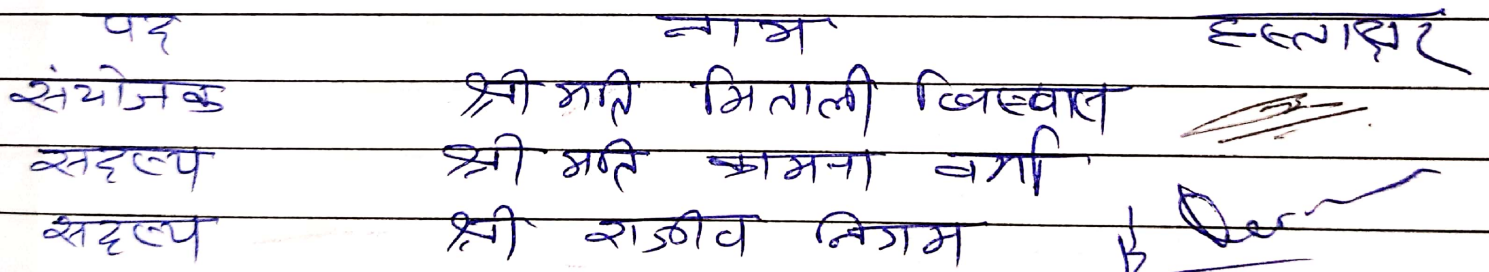 पद नाम हस्ताक्षर
संयोजक श्री मति मिताली बिस्वास
सदस्य श्री मति कामना वर्मा
सदस्य श्री राजीव निगम